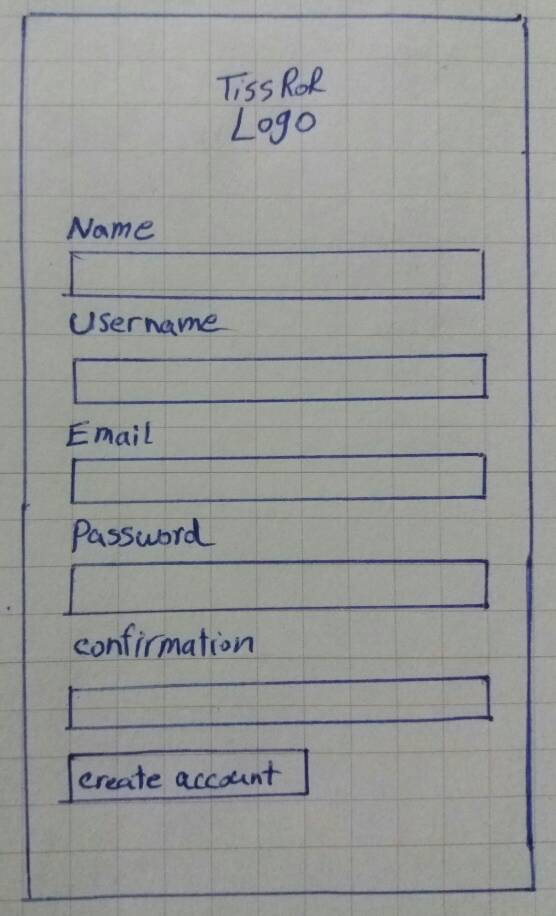 TissRoR
Logo
Name
Username
Email
Password
confirmation
create account